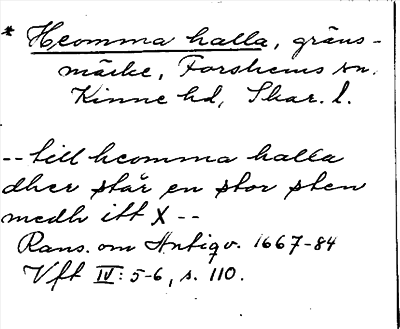 * Heomma halla, gräns-
märke, Forshems sn.
Kinne hd, Skar. l.
-- till heomma halla
dher står en stor sten
medh itt X --
Rans. om Antiqv. 1667-84
Vft IV: 5-6, s. 110.